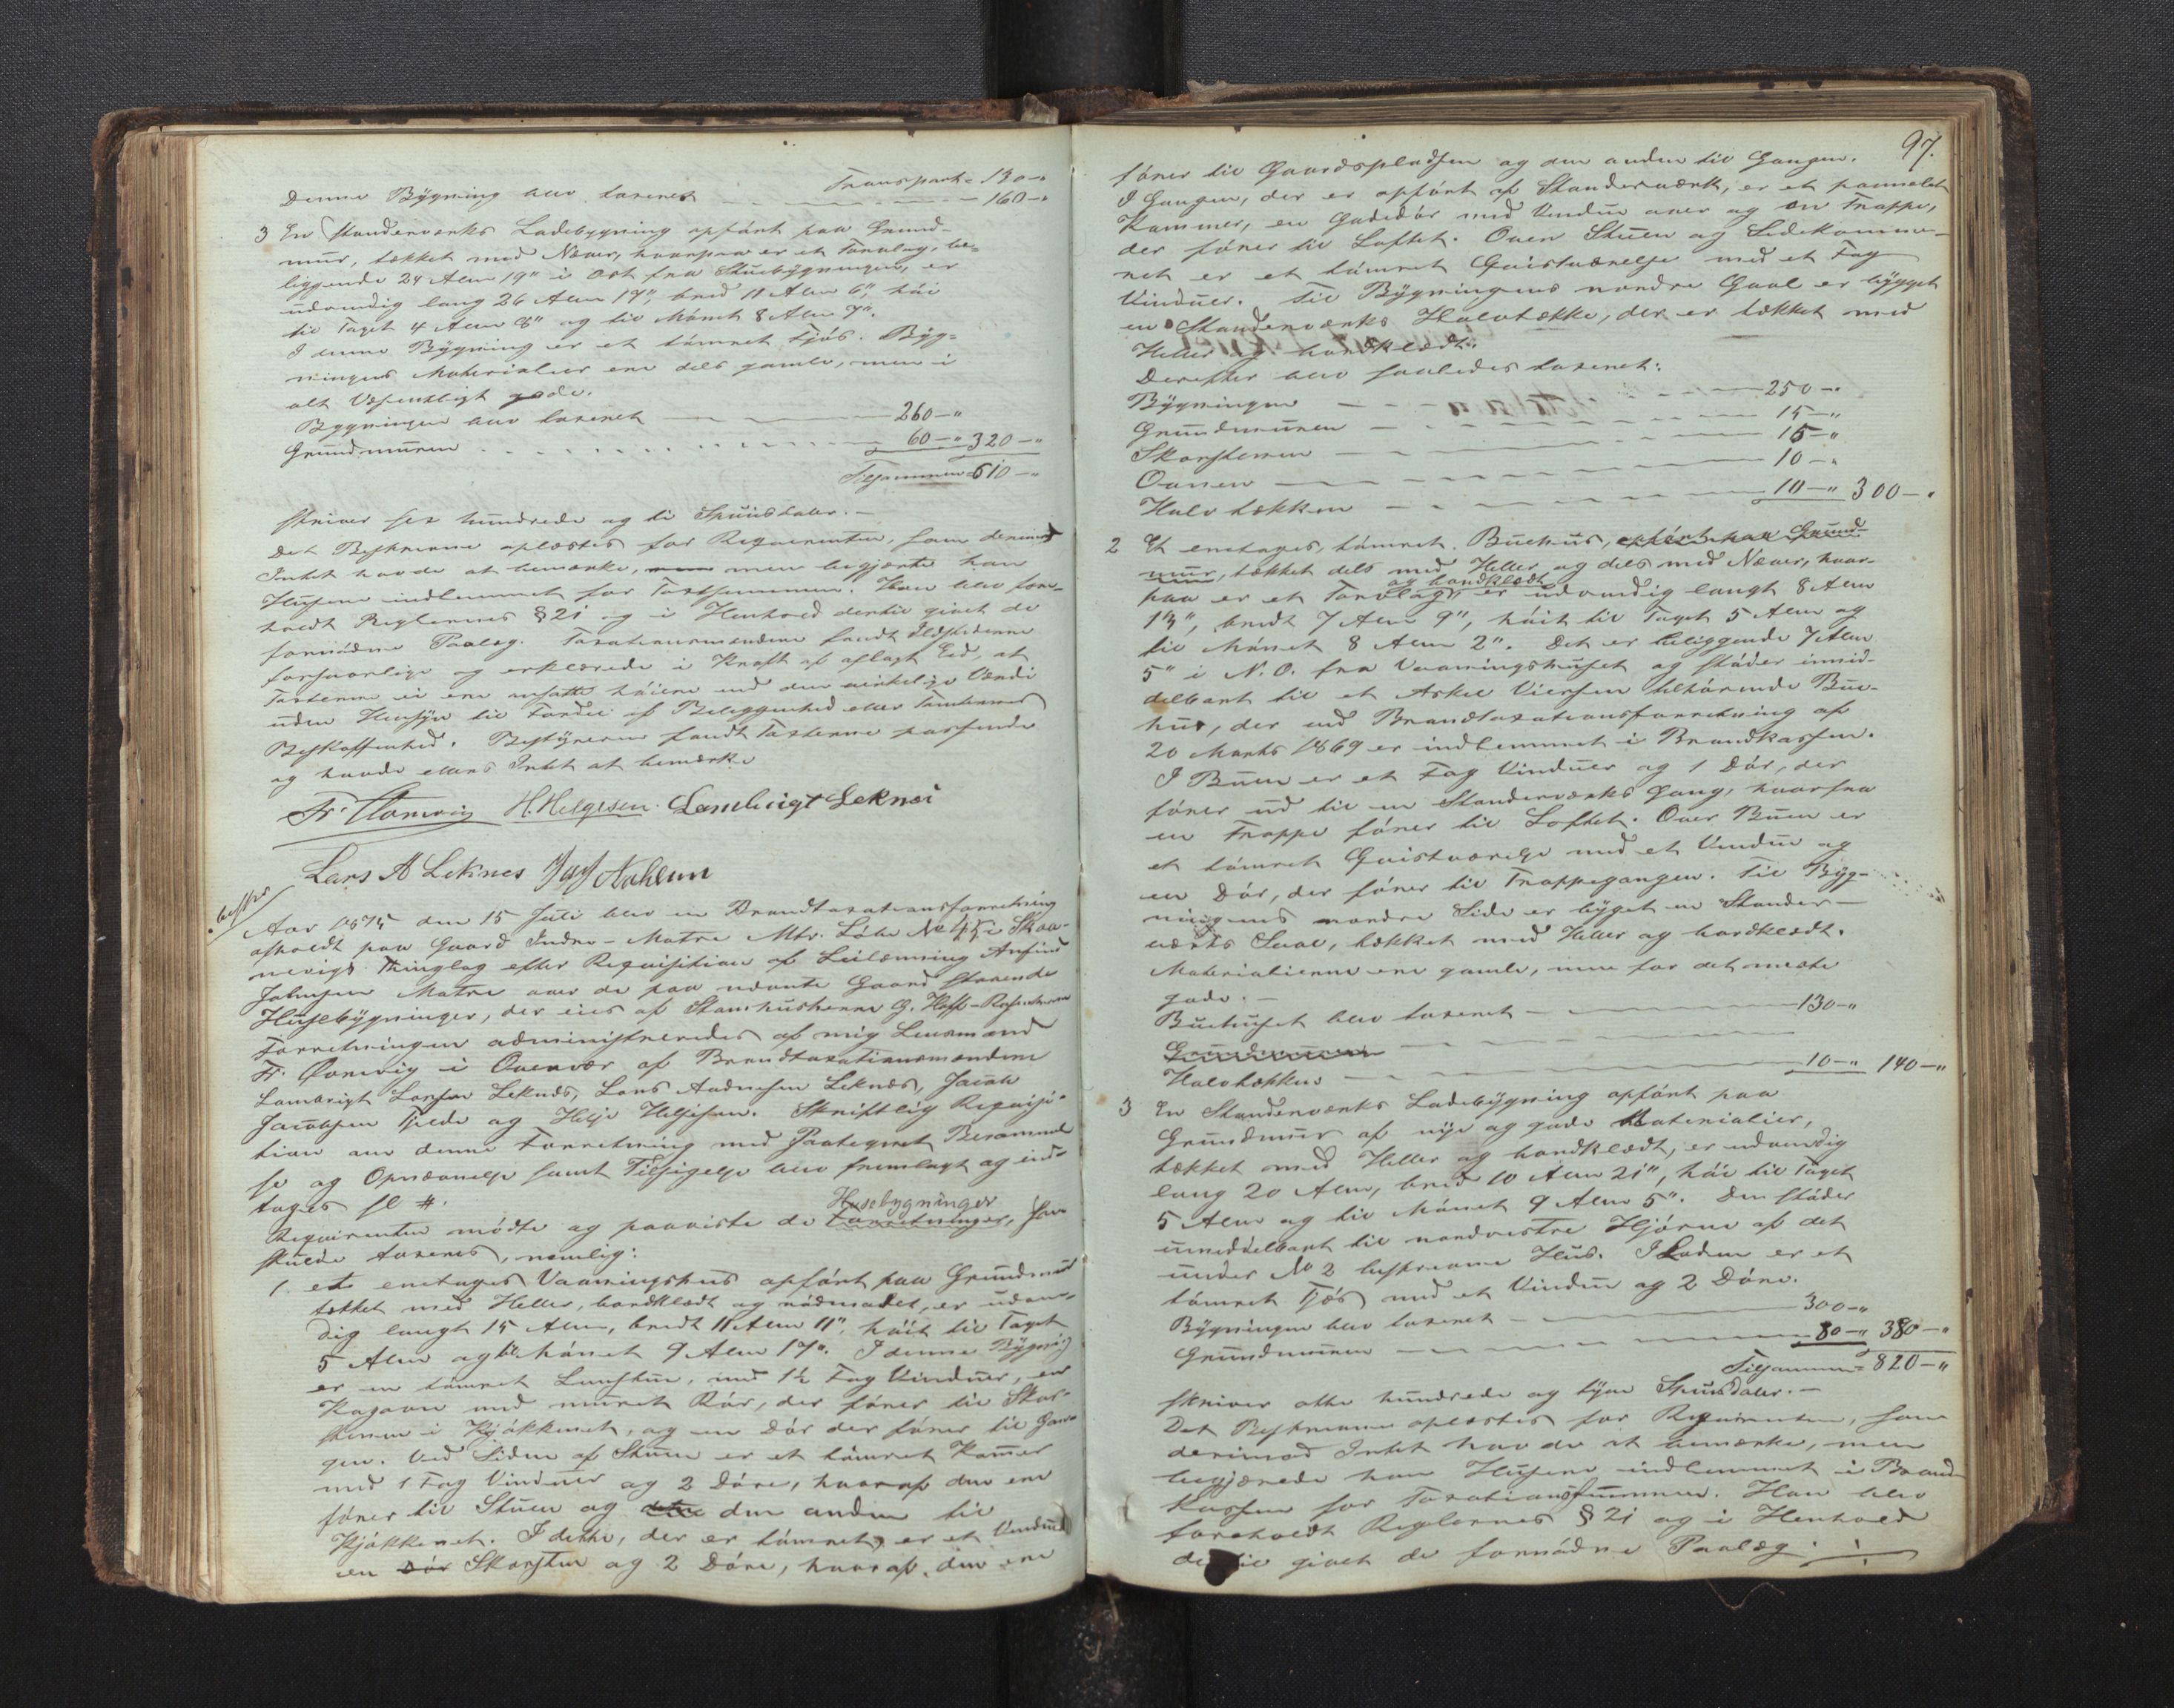 Transport 130-"
Denne Bÿgning blev taxeret 160-"
3 En standerværks Ladebygning opfört paa Grund-
mur, tækket med Næver, hvorpaa er et Torvlag, be-
liggende 24 Alen 19" i Ost fra Stuebÿgningen, er
udvendig lang 26 Alen 17", bred 11 Alen 6", höi
til Taget 4 Alen 8" og til Mönet 8 Alen 7".
I denne Bÿgning er et tömret Fjös. Bÿg-
ningens Materialier ere dels gamle, men i
alt Væsentligt gode.
Bygningen blev taxeret 260-"
Grundmuren 60-" 320-"
Tilsammen 610-"
skriver sex hundrede og ti Speciedaler.-
Det Beskrevne oplæstes for Reqvirenten, som derimod
Intet havde at bemærke, men begjærte han
Husene indlemmet for Taxtsummen. Han blev fore-
holdt Reglernes § 21 og i Henhold dertil givet de
fornödne Paalæg. Taxationsmændene fandt Ildstederne
forsvarlige og erklærede i Kraft af aflagt Eed, at
Taxterne ei ere ansatte höiere end den virkelige Værdi
uden Hensÿn til Fordel af Beliggenhed eller Tomternes
Beskaffenhed. Bestÿreren fandt Taxterne passende
og havde ellers Intet at bemærke
H. Helgesen. Lambrigt Leknæs
Lars A Leknes
Aar 1875 den 15 Juli blev en Brandtaxationsforretning
afholdt paa Gaard Indre-Matre Mtr. Löbe No 45 i Skaa-
nevigs Thinglag efter Reqvisition af Leilænning Anfind
Johnsen Matre over de paa nævnte Gaard staaende
Husebÿgninger, der eies af Stamhusherre G. Hoff-Rosenkrone
Forretningen administreredes af mig Lensmand
i Ovenvær af Brandtaxationsmændene
Lambrigt Larsen Leknæs, Lars Aadnesen Leknæs, Jacob
Jacobsen Tjelde og Helje Heljesen. Skriftlig Reqvisi-
tion om denne Forretning med Paategnet Berammel
se og Opnævnelse samt Tilsigelse blev fremlagt og ind-
tages sl #.
Husebygninger
Reqvirenten mödte og paaviste de Forretninger, som
skulde taxeres, nemlig:
1. et enetages Vaaningshus opfört paa Grundmur
tækket med Heller, bordklædt og rödmalet, er udven-
dig langt 15 Alen, bredt 11 Alen 11", höit til Taget
5 Alen og til Mönet 9 Alen 17". I denne Bÿgning
er en tömret Lunstue, med 1½ Fag Vinduer, en
Kogeovn med muret Rör, der förer til Skor-
stenen i Kjökkenet, og en Dör der förer til Gan-
gen. Ved Siden af Stuen er et tömret Kamer
med 1 Fag Vinduer og 2 Döre, hvoraf den ene
förer til Stuen og den anden til
Kjökkenet. I dette, der er tömret, er et Vindue
en Dör Skorsten og 2 Döre, hvoraf den ene
97.
förer til Gaardspladsen og den anden til Gangen.
I Gangen, der er opfört af Standerværk, er et pannelet
Kammer, en Gadedör med Vindue over og en Trappe,
der förer til Loftet. Over Stuen og Sidekamme-
ret er et tömret Qvistværelse med et Fag
Vinduer. Til Bÿgningens nordre Gavl er bÿgget
en Standerværks Halvtække, der er tækket med
Heller og bordklædt.
Derefter blev saaledes taxeret:
Bÿgningen 250-"
Grundmuren 15-"
Skorstenen 15-"
Ovnen 10-"
Halvtækken 10-" 300-"
2 Et enetages, tömret Buehus, opfört paa Grund-
mur, tækket dels med Heller og dels med Næver, hvor-
og bordklædt
paa er et Torvlag, er udvendig langt 8 Alen
13", bredt 7 Alen 9", höit til Taget 5 Alen og
til Mönet 8 Alen 2". Det er beliggende 7 Alen
5" i N. O. fra Vaaningshuset og stöder imid-
delbart til et Askel Viersen tilhörende Bue-
hus, der ved Brandtaxationsforretning af
20 Marts 1869 er indlemmet i Brandkassen.
I Buen er et Fag Vinduer og 1 Dör, der
förer ud til en Standerværks Gang, hvorfra
en Trappe förer til Loftet. Over Buen er
et tömret Qvistværelse med et Vindue og
en Dör, der förer til Trappegangen. Til Bÿg-
ningens nordre Side er bÿget en Stander-
værks Sval, tækket med Heller og bordklædt.
Materialierne ere gamle, men for det meste
gode.-
Buehuset blev taxeret 130-"
Grundmuren
Halvtækken 10-" 140-"
3 En Standerværks Ladebÿgning opfört paa
Grundmur af nÿe og gode Materialier,
tækket med Heller og bordklædt, er udvendig
lang 20 Alen, bred 10 Alen 21", höi til Taget
5 Alen og til Mönet 9 Alen 5". Den stöder
umiddelbart til nordvestre Hjörne af det
under No 2 beskrevne Hus. I Laden er et
tömret Fjös med et Vindue og 2 Döre.
Bÿgningen blev taxeret 300-"
Grundmuren 80-" 380-"
Tilsammen 820-"
skriver otte hundrede og tÿve Speciedaler.-
Det Beskrevne oplæstes for Reqvirenten, som
derimod Intet havde at bemærke, men
begjærede han Husene indlemmet i Brand
kassen for Taxationssummen. Han blev
foreholdt Reglernes § 21 og i Henhold
dertil givet de fornödne Paalæg.